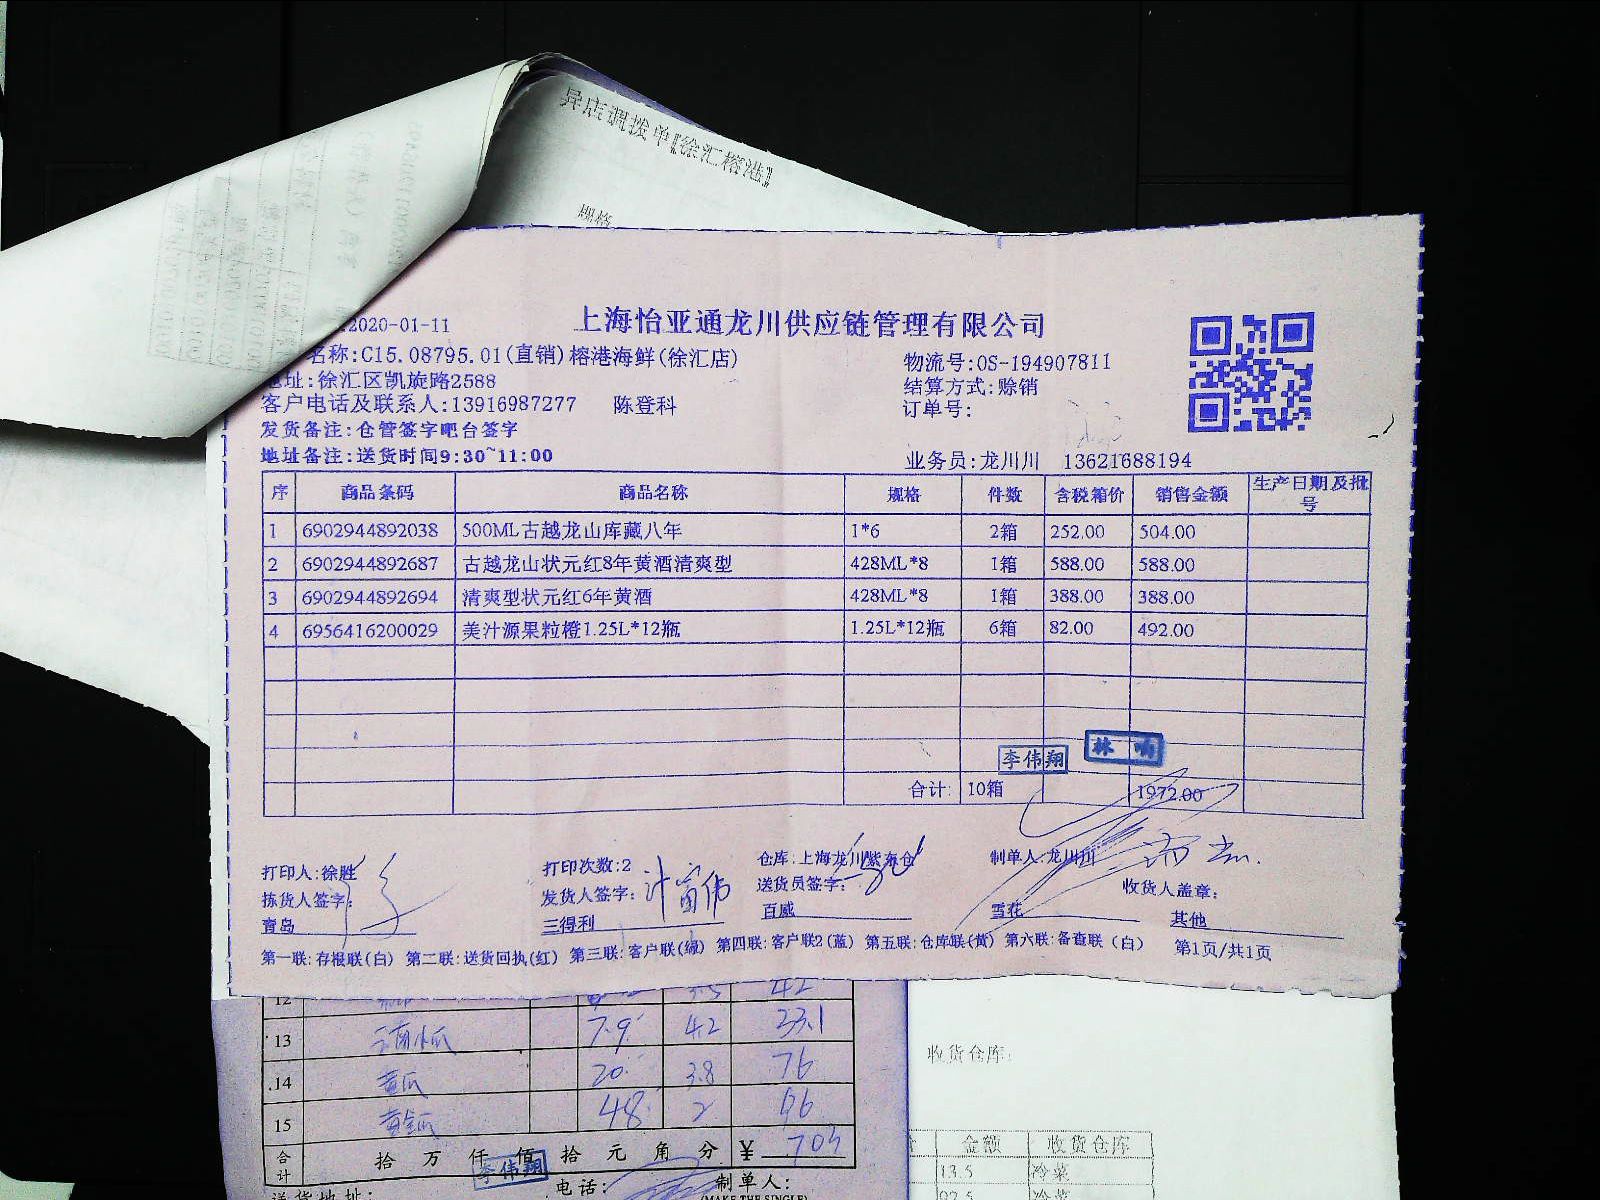 异店调拨单【徐汇榕港】
规格
2020-01-11
上海怡亚通龙川供应链管理有限公司
名称:C15.08795.01(直销)榕港海鲜(徐汇店)
物流号:OS-194907811
地址:徐汇区凯旋路2588
结算方式:赊销
客户电话及联系人:13916987277 陈登科
订单号:
发货备注:仓管签字吧台签字
地址备注:送货时间9:30~11:00
业务员:龙川川 13621688194
序 商品条码 商品名称 规格 件数 含税箱价 销售金额 生产日期及批号
1 6902944892038 500ML古越龙山库藏八年 1*6 2箱 252.00 504.00
2 6902944892687 古越龙山状元红8年黄酒清爽型 428ML*8 1箱 588.00 588.00
3 6902944892694 清爽型状元红6年黄酒 428ML*8 1箱 388.00 388.00
4 6956416200029 美汁源果粒橙1.25L*12瓶 1.25L*12瓶 6箱 82.00 492.00
李伟翔 林
合计: 10箱 1972.00
打印人:徐胜 打印次数:2 仓库:上海龙川紫东仓 制单人:龙川川
拣货人签字: 发货人签字: 送货员签字: 收货人盖章:
青岛 三得利 百威 雪花 其他
第一联:存根联(白) 第二联:送货回执(红) 第三联:客户联(绿) 第四联:客户联2(蓝) 第五联:仓库联(黄) 第六联:备查联(白) 第1页/共1页
12 3.5 42
13 7.9 42 23.1
14 黄瓜 20. 3.8 76
15 48 2 96
合计 拾 万 仟 佰 拾 元 角 分 ¥ 704
李伟翔
送货地址: 电话: 制单人:
(MAKE THE SINGLE)
收货仓库:
金额 收货仓库
13.5 冷菜
97.5 冷菜